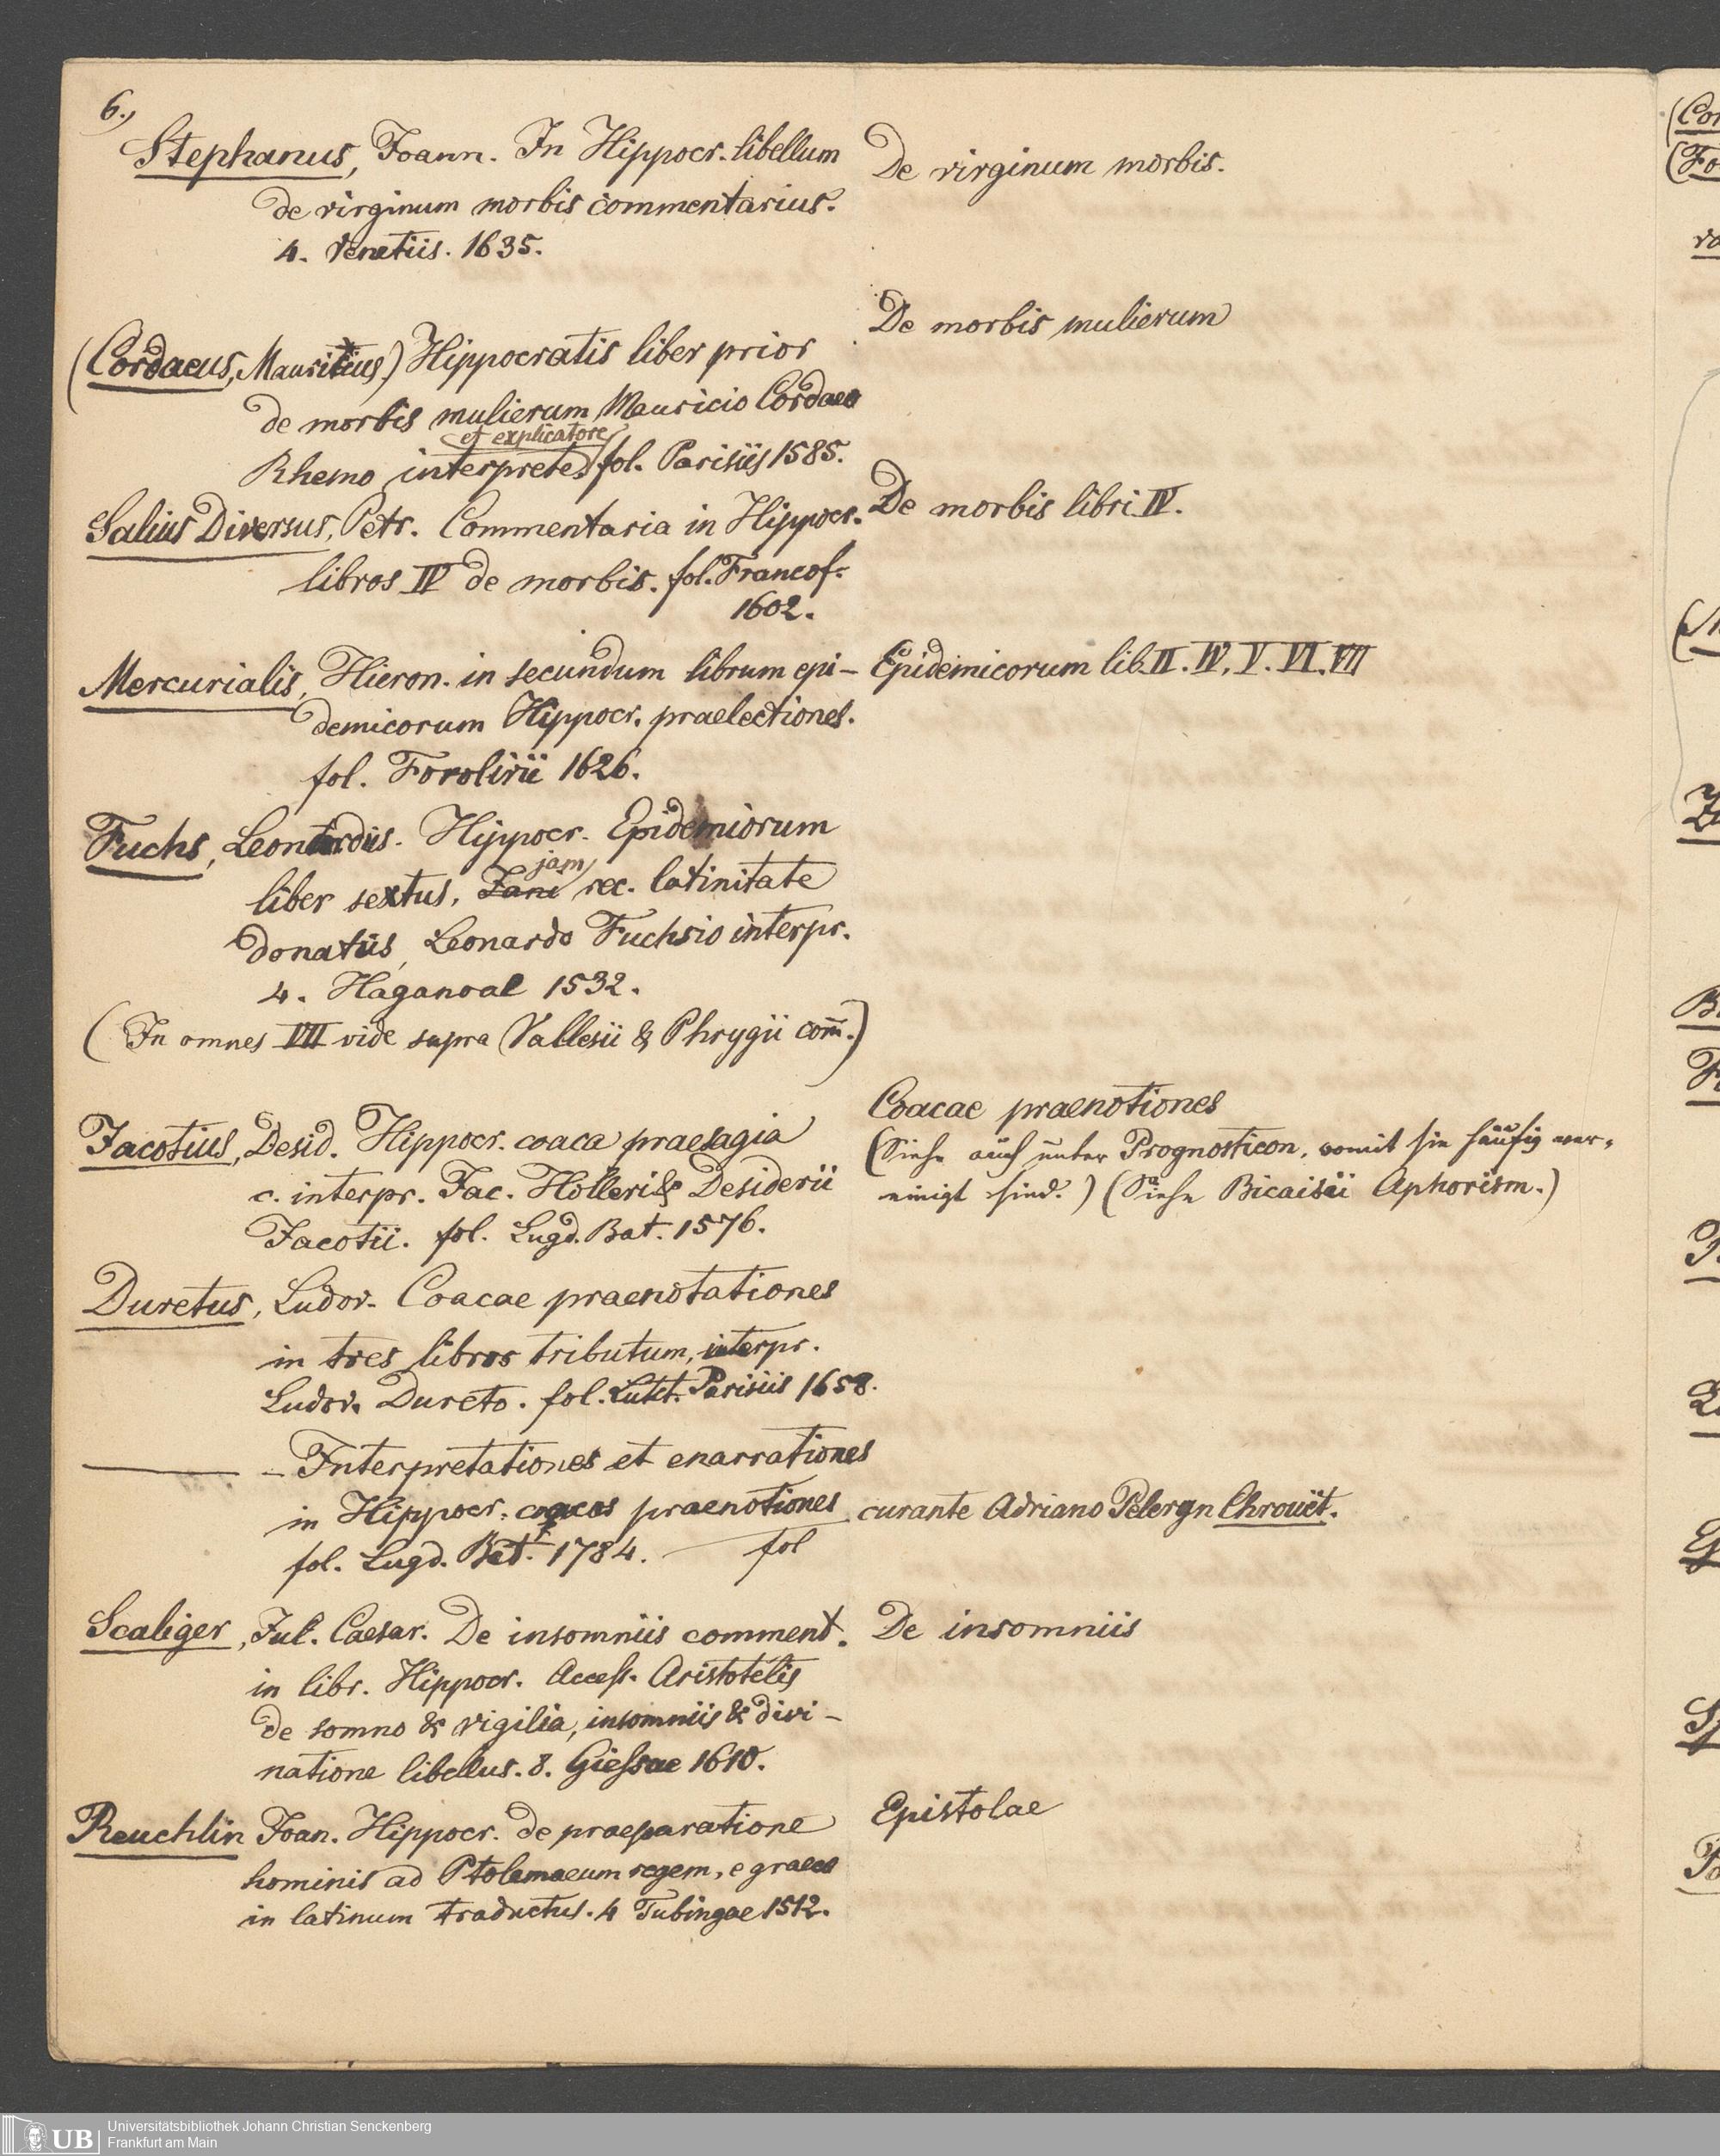 6.,
Stephanus, Joann. In Hippocr. libellum
de virginum morbis commentarius.
4. Venetiis. 1635.
De virginum morbis.
(Cordaeus, Mauritius) Hippocratis liber prior
de morbis mulierum Mauricio Cordaeo
et explicatore
Rhemo interprete fol. Parisiis 1585.
De morbis mulierum
Salius Diversus, Petr. Commentaria in Hippocr.
libros IV de morbis. fol. Francof.
1602.
De morbis libri IV.
Mercurialis, Hieron. in secundum librum epi-
demicorum Hippocr. praelectiones.
fol. Forolivii 1626.
Epidemicorum lib. II. IV. V. VI. VII
Fuchs, Leonardus. Hippocr. Epidemiorum
jam
liber sextus, Jani rec. latinitate
donatus, Leonardo Fuchsio interpr.
4. Haganoae 1532.
(In omnes VII vide supra Vallesii & Phrygii com̄.)
Jacotius, Desid. Hippocr. coaca praesagia
c. interpr. Jac. Hollerii & Desiderii
Jacotii. fol. Lugd. Bat. 1576.
Coacae praenotiones
(Siehe auch unter Prognosticon, womit sie häufig ver-
einigt sind.) (Siehe Bicaisii Aphorism.)
Duretus, Ludov. Coacae praenotationes
in tres libros tributum, interpr.
Ludov. Dureto. fol. Lutet. Parisiis 1658.
— Interpretationes et enarrationes
in Hippocr. coacas praenotiones
fol. Lugd. Bat. 1784. — fol
curante Adriano Pelergn Chrouët.
Scaliger, Jul. Caesar. De insomniis comment.
in libr. Hippocr. Access. Aristotelis
de somno & vigilia, insomniis & divi-
natione libellus. 8. Giessae 1610.
De insomniis
Reuchlin Joan. Hippocr. de praeparatione
hominis ad Ptolemaeum regem, e graeco
in latinum traductus. 4 Tubingae 1512.
Epistolae
UB
Universitätsbibliothek Johann Christian Senckenberg
Frankfurt am Main